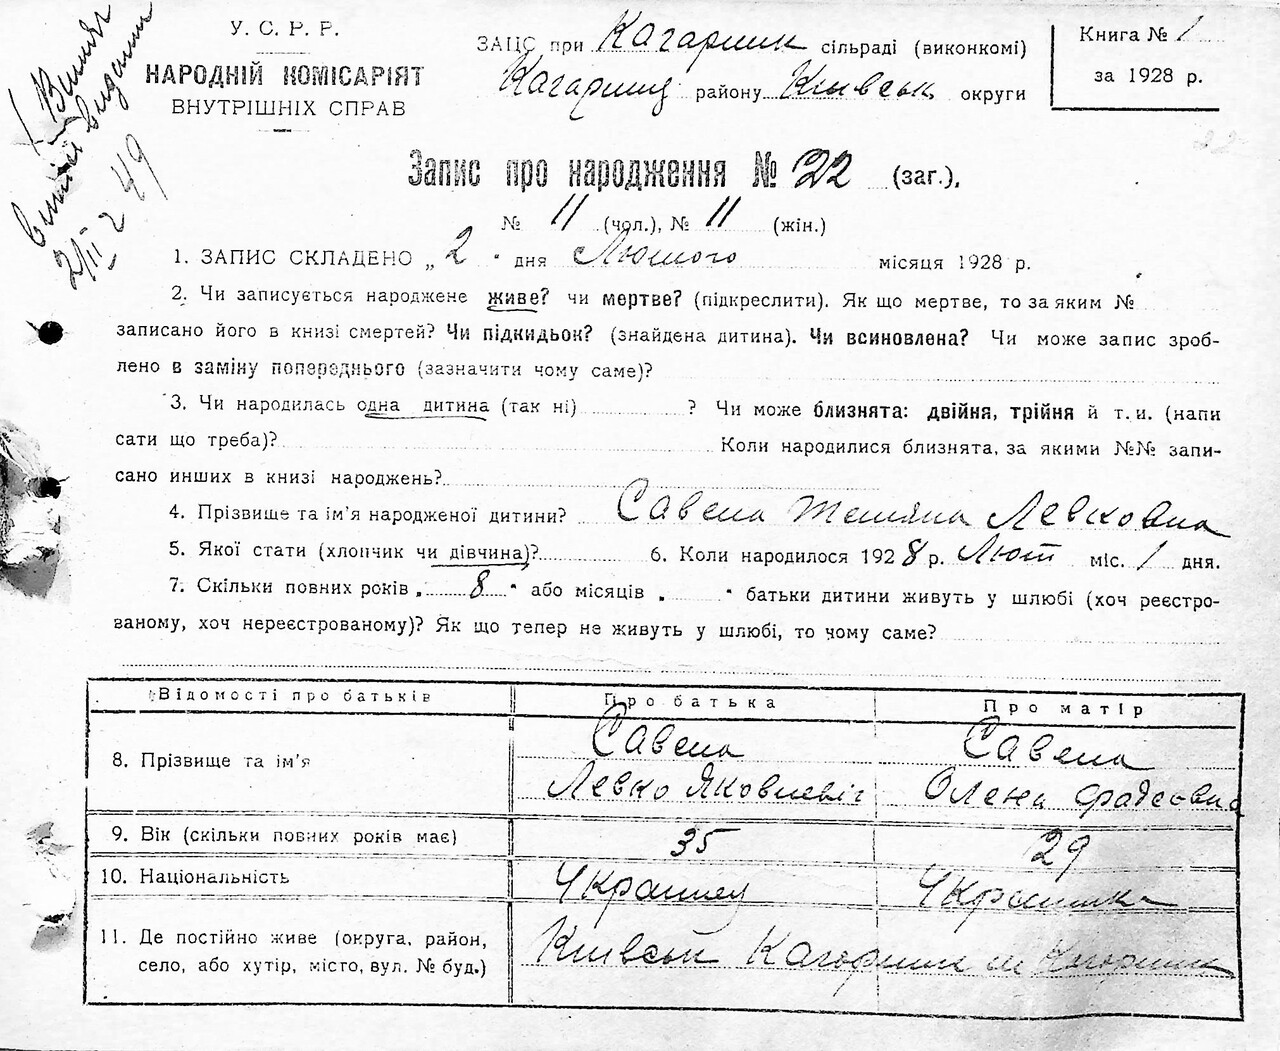 У. С. Р. Р.
НАРОДНІЙ КОМІСАРІЯТ
ВНУТРІШНІХ СПРАВ
ЗАЦС при Кагарлик сільраді (виконкомі)
Кагарлиц району Київськ округи
Книга № 1
за 1928 р.
Витяг
виданий
2/II 49
Запис про народження № 22 (заг.),
№ 11 (чол.), № 11 (жін.)
1. ЗАПИС СКЛАДЕНО „ 2 " дня Лютого місяця 1928 р.
2. Чи записується народжене живе? чи мертве? (підкреслити). Як що мертве, то за яким №
записано його в книзі смертей? Чи підкидьок? (знайдена дитина). Чи всиновлена? Чи може запис зроб-
лено в заміну попереднього (зазначити чому саме)?
3. Чи народилась одна дитина (так ні) ? Чи може близнята: двійня, трійня й т. и. (напи
сати що треба)? Коли народилися близнята, за якими №№ запи-
сано инших в книзі народжень?
4. Прізвище та ім'я народженої дитини? Савела Тетяна Левковна
5. Якої стати (хлопчик чи дівчина)? 6. Коли народилося 1928 р. Лют міс. 1 дня.
7. Скільки повних років „ 8 " або місяців „ " батьки дитини живуть у шлюбі (хоч реєстро-
ваному, хоч нереєстрованому)? Як що тепер не живуть у шлюбі, то чому саме?
Відомості про батьків Про батька Про матір
8. Прізвище та ім'я Савела Левко Яковлевіч Савела Олена
9. Вік (скільки повних років має) 35 29
10. Національність Українец Українка
11. Де постійно живе (округа, район, Київськ Кагарлик м Кагарлик
село, або хутір, місто, вул. № буд.)